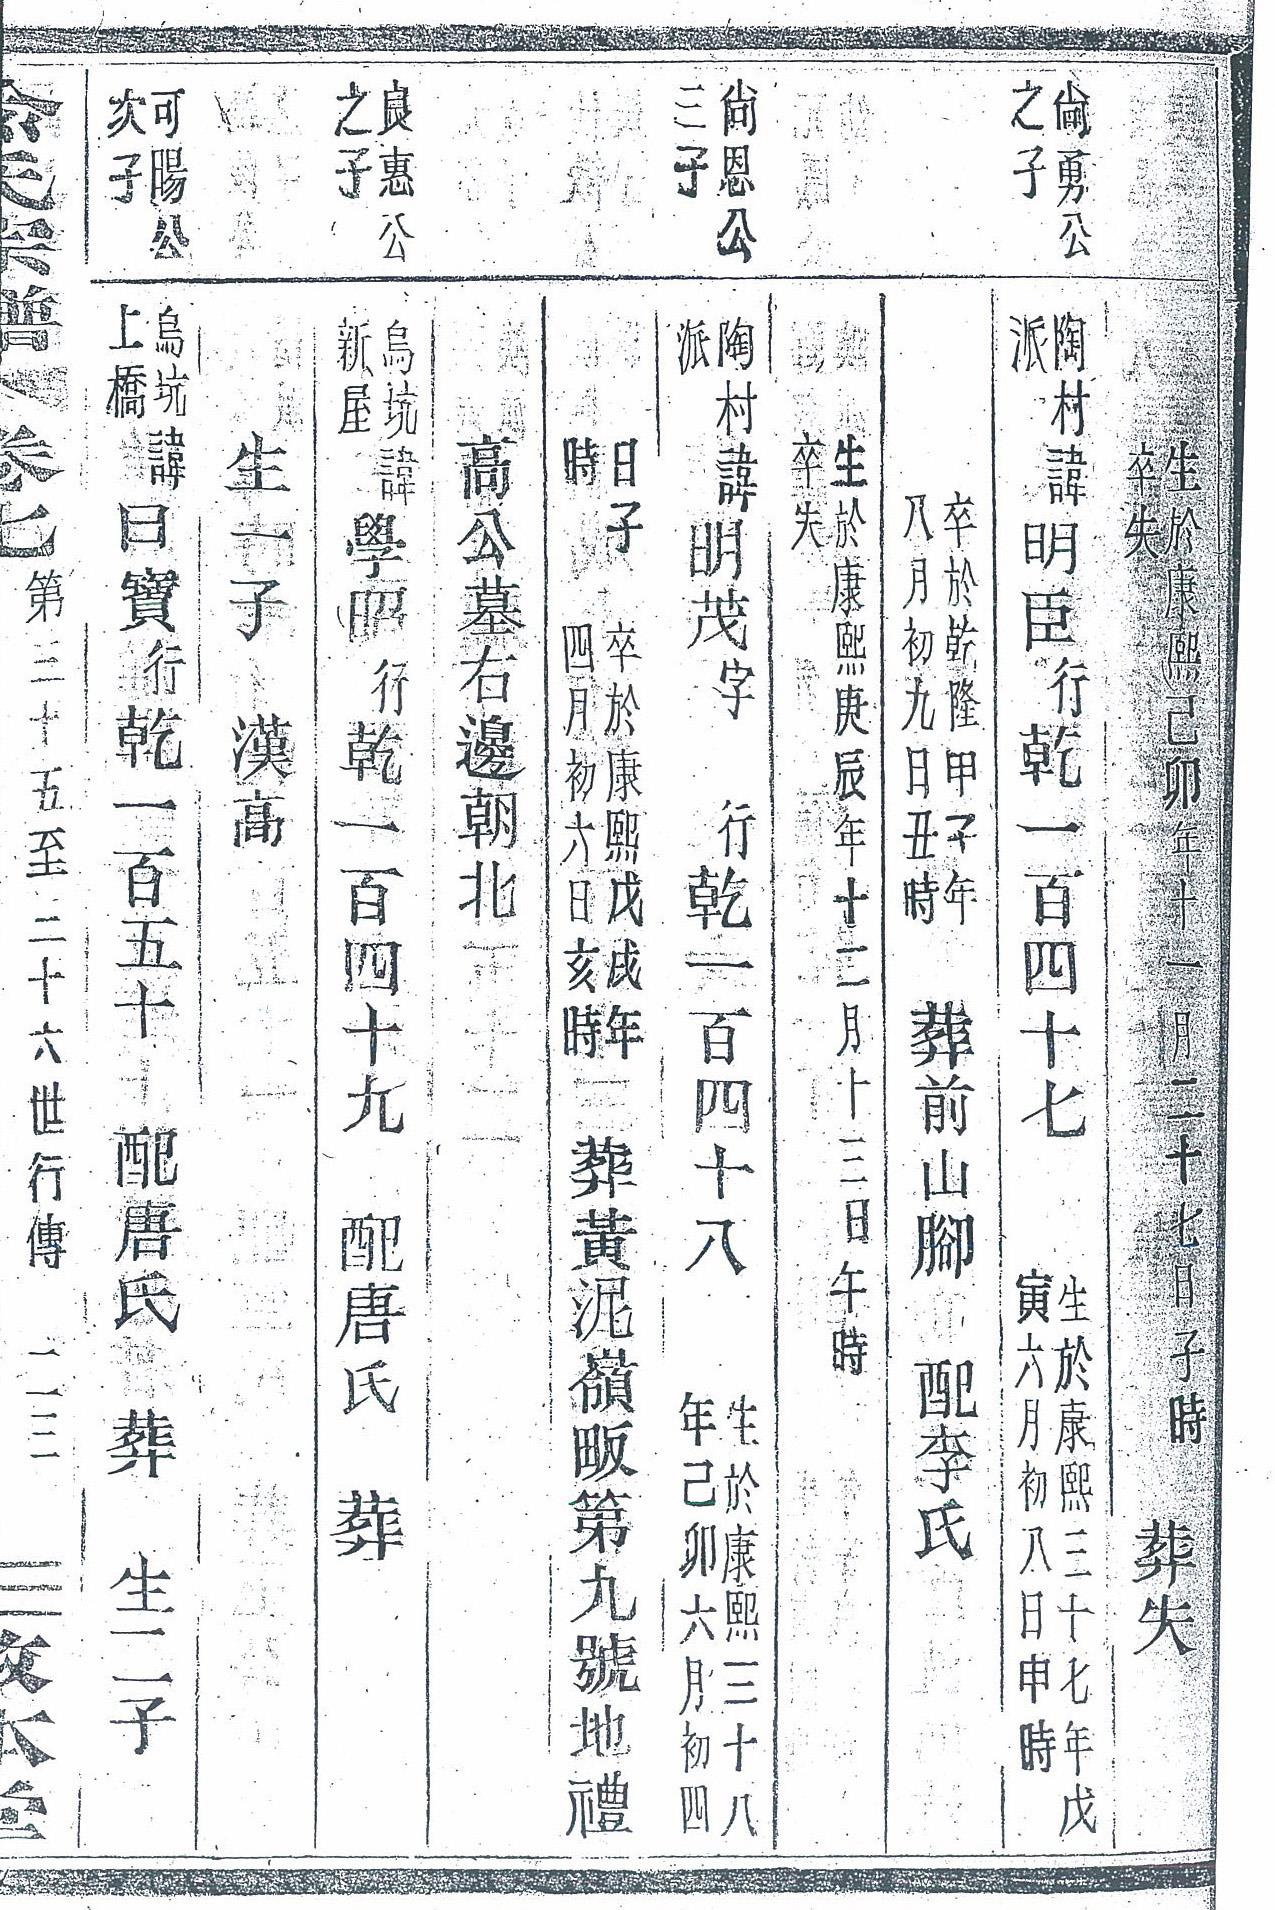 生於康熙己卯年十一月二十七日子時
卒失
葬失
尙勇公
之子
陶村
派
諱明臣行乾一百四十七
生於康熙三十七年戊
寅六月初八日申時
卒於乾隆甲子年
八月初九日丑時
葬前山腳 配李氏
生於康熙庚辰年十二月十三日午時
卒失
尙恩公
三子
陶村
派
諱明茂字 行乾一百四十八
生於康熙三十八
年己卯六月初四
日子
時
卒於康熙戊戌年
四月初六日亥時
葬黃泥嶺畈第九號地禮
高公墓右邊朝北
良惠公
之子
烏坑
新屋
諱學昭行乾一百四十九 配唐氏 葬
生一子 漢高
可陽公
次子
烏坑
上橋
諱曰寶行乾一百五十 配唐氏 葬 生二子
氏宗譜 卷七 第二十五至二十六世行傳 一二三 敦本堂